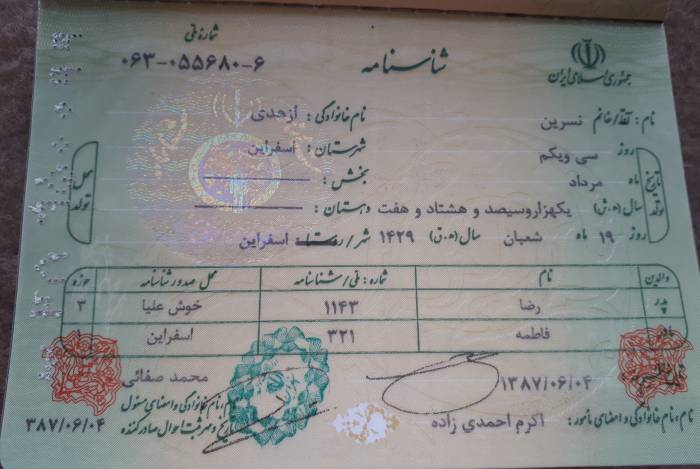 شماره ملی
۰۶۳-۰۵۵۶۸۰-۶
شناسنامه
جمهوری اسلامی ایران
نام: آقا/خانم نسرین
نام خانوادگی: ازهدی
تاریخ تولد
روز سی ویکم
ماه مرداد
سال (ه.ش) یکهزاروسیصد و هشتاد و هفت
روز ۱۹ ماه شعبان سال (ه.ق) ۱۴۲۹
محل تولد
شهرستان: اسفراین
بخش:
دهستان:
شهر/روستا: اسفراین
والدین نام شماره: ملی/شناسنامه محل صدور شناسنامه حوزه
پدر رضا ۱۱۴۳ خوش علیا ۳
مادر فاطمه ۳۲۱ اسفراین
۱۳۸۷/۰۶/۰۴
نام، نام خانوادگی و امضای مأمور: اکرم احمدی زاده
محمد صفائی
نام، نام خانوادگی و امضای مسئول
و مهر ثبت احوال صادرکننده
۳۸۷/۰۶/۰۴